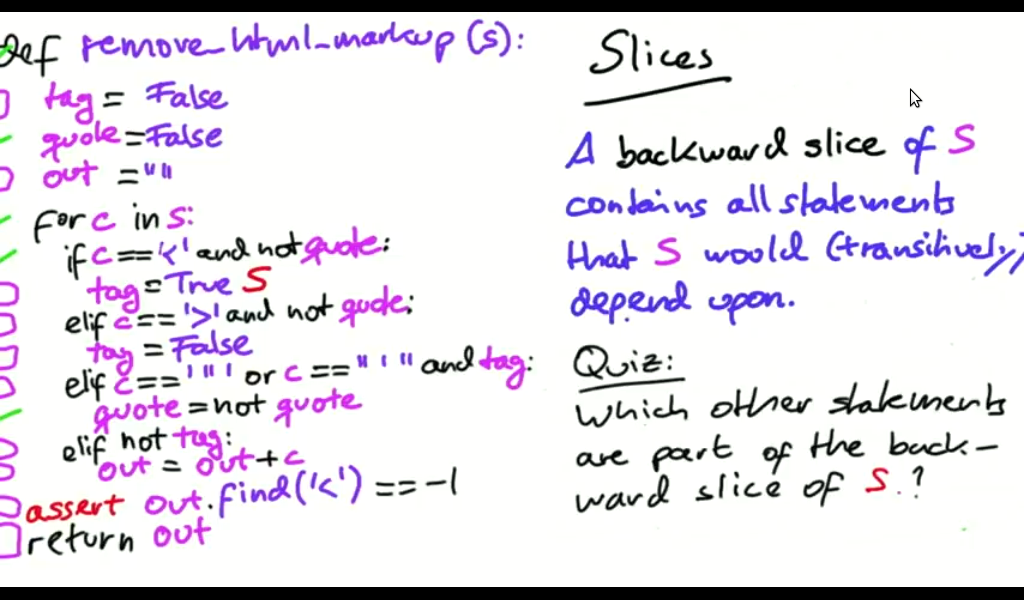 def remove_html_markup (s):
tag = False
quote = False
out = ""
for c in s:
if c == '<' and not quote:
tag = True S
elif c == '>' and not quote:
tag = False
elif c == '"' or c == "'" and tag:
quote = not quote
elif not tag:
out = out + c
assert out.find('<') == -1
return out
Slices
A backward slice of S
contains all statements
that S would (transitively)
depend upon.
Quiz:
Which other statements
are part of the back-
ward slice of S.?